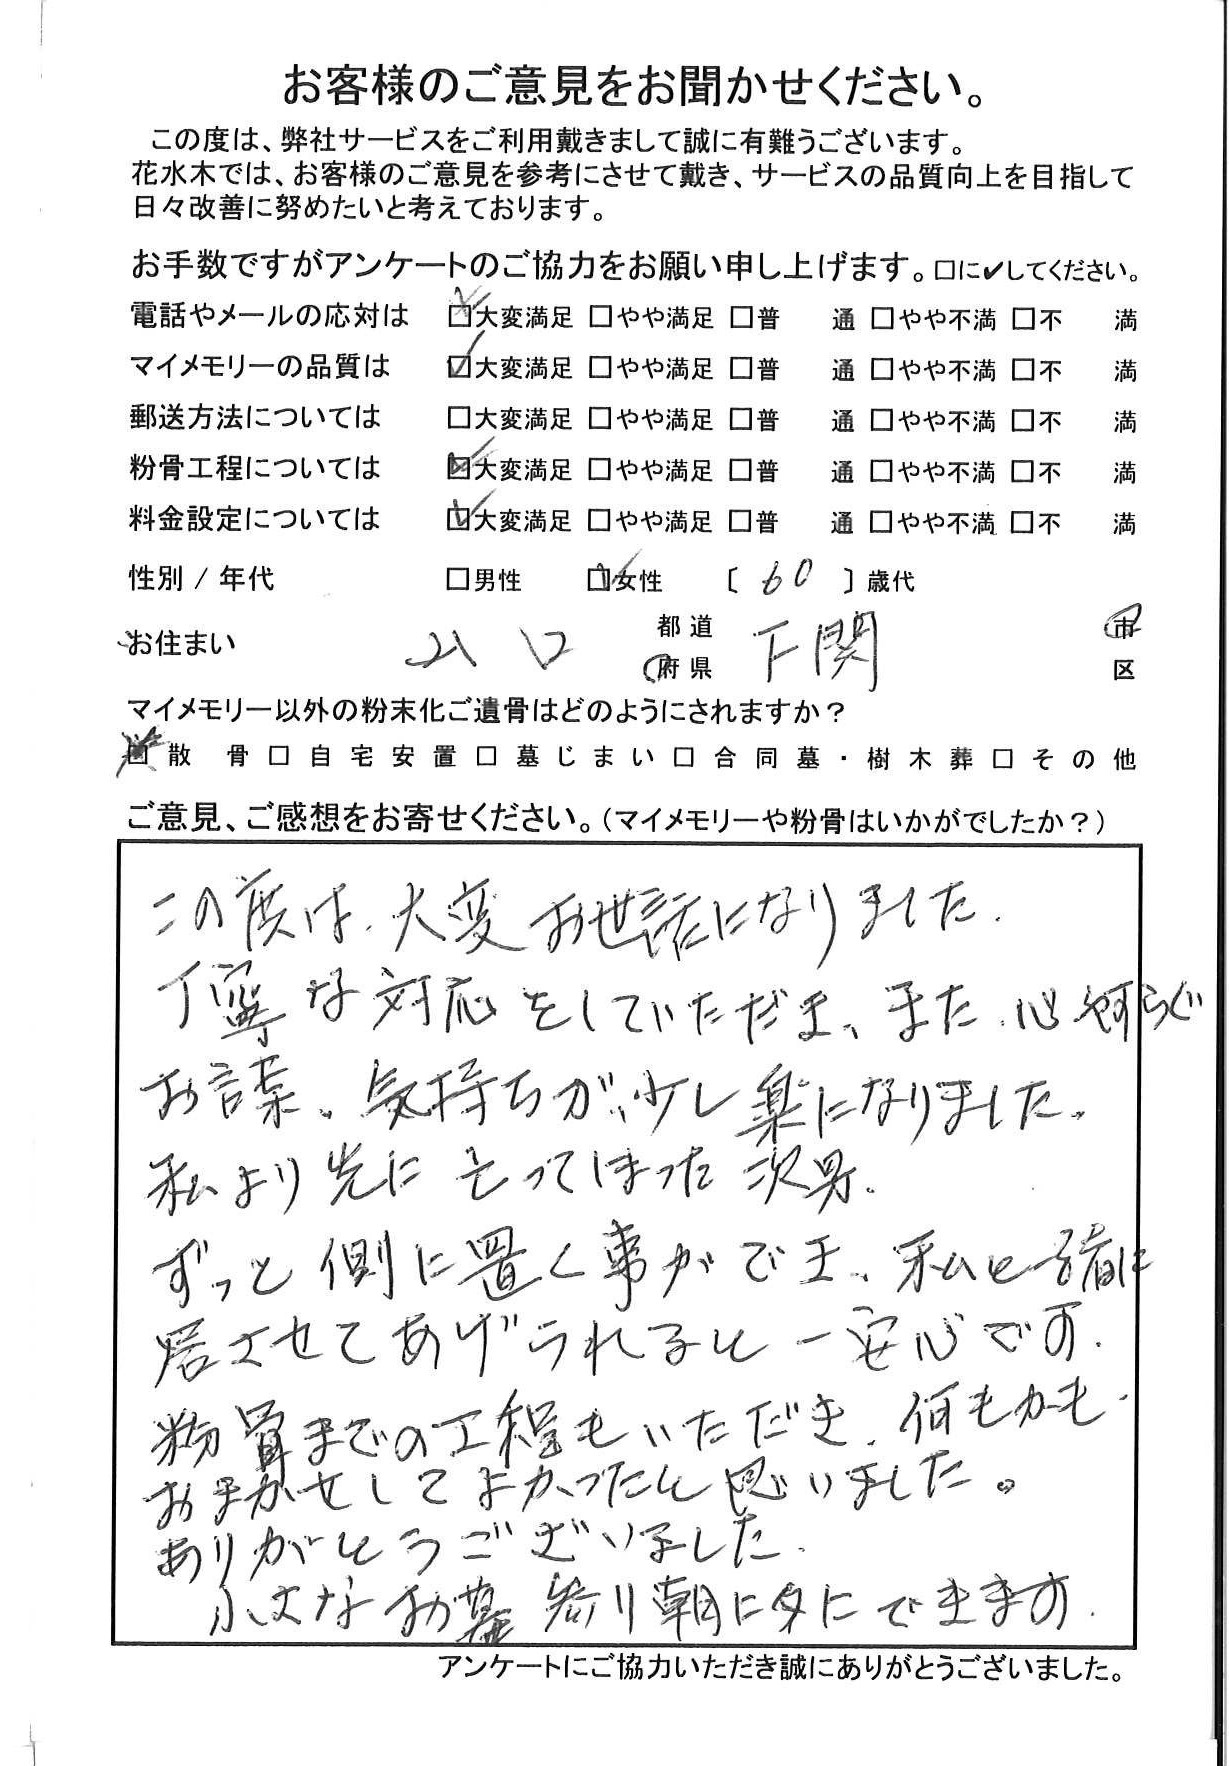 お客様のご意見をお聞かせください。
この度は、弊社サービスをご利用戴きまして誠に有難うございます。
花水木では、お客様のご意見を参考にさせて戴き、サービスの品質向上を目指して
日々改善に努めたいと考えております。
お手数ですがアンケートのご協力をお願い申し上げます。□に✔してください。
電話やメールの応対は ☑大変満足 □やや満足 □普 通 □やや不満 □不 満
マイメモリーの品質は ☑大変満足 □やや満足 □普 通 □やや不満 □不 満
郵送方法については □大変満足 □やや満足 □普 通 □やや不満 □不 満
粉骨工程については ☑大変満足 □やや満足 □普 通 □やや不満 □不 満
料金設定については ☑大変満足 □やや満足 □普 通 □やや不満 □不 満
性別 / 年代 □男性 ☑女性 〔 60 〕歳代
お住まい 山口 都道府県 下関 市区
マイメモリー以外の粉末化ご遺骨はどのようにされますか？
☑散 骨 □自宅安置 □墓じまい □合同墓・樹木葬 □その他
ご意見、ご感想をお寄せください。（マイメモリーや粉骨はいかがでしたか？）
この度は、大変お世話になりました.
丁寧な対応をしていただき、また、心和らぐ
お言葉、気持ちが、少し楽になりました.
私より先に 逝ってしまった次男.
ずっと側に置く事ができ、私と一緒に
居させてあげられると一安心です.
粉骨までの工程もいただき、何もかも
おまかせしてよかったと思いました。
ありがとうございました.
小さなお墓 参り朝に夕にできます.
アンケートにご協力いただき誠にありがとうございました。